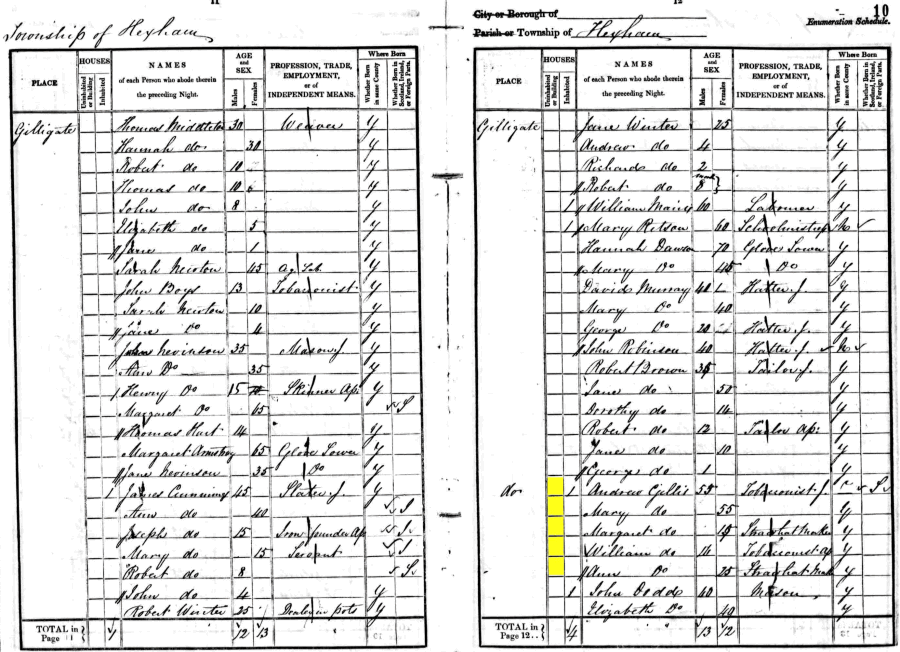 11
Township of Hexham
PLACE
HOUSES
Uninhabited or Building
Inhabited
NAMES
of each Person who abode therein
the preceding Night.
AGE and SEX
Males
Females
PROFESSION, TRADE,
EMPLOYMENT,
or of
INDEPENDENT MEANS.
Where Born
Whether Born in same County
Whether Born in Scotland, Ireland, or Foreign Parts.
Gilligate Thomas Middleton 30 Weaver Y
Hannah do 30 Y
Robert do 10 Y
Thomas do 10 Y
John do 8 Y
Elizabeth do 5 Y
Jane do 1 Y
Sarah Newton 45 Ag Lab. Y
John Boys 13 Tobacconist Y
Sarah Newton 10 Y
Jane Do 4 Y
Nevinson 35 Mason J. Y
Ann Do 35 Y
Henry Do 15 Skinner Ap. Y
Margaret Do 65 S
Thomas Hart 14 Y
Margaret Armstrong 65 Glove Sower Y
Jane Nevinson 35 Do Y
1 James Cummings 45 Slater J. Y
Ann do 40
Joseph do 15 Iron founder Ap
Mary do 15 Servant
Robert do 8 S
John do 4 Y
Robert Winter 25 Dealer in pots Y
TOTAL in Page 11 1 12 13
12
10
City or Borough of
Enumeration Schedule.
Parish or Township of Hexham
PLACE
HOUSES
Uninhabited or Building
Inhabited
NAMES
of each Person who abode therein
the preceding Night.
AGE and SEX
Males
Females
PROFESSION, TRADE,
EMPLOYMENT,
or of
INDEPENDENT MEANS.
Where Born
Whether Born in same County
Whether Born in Scotland, Ireland, or Foreign Parts.
Gilligate Jane Winter 25 Y
Andrew do 4 Y
Richard do 2 Y
Robert do 8 week Y
1 William 60 Labourer Y
1 Mary Ritson 60 Schoolmistress N
Hannah Dawson 70 Glove Sower Y
Mary Do 45 Do Y
David Murray 40 Hatter J. Y
Mary Do 40 Y
George Do 20 Hatter J. Y
John Robinson 40 Hatter J. N
Robert Brown 35 Tailor J. Y
Jane do 50 Y
Dorothy do 14 Y
Robert do 12 Tailor Ap. Y
Jane do 10 Y
George do 1 Y
do 1 Andrew Gillis 55 Tobacconist J S
Mary do 55 Y
Margaret do 15 Strawhat Maker Y
William do 14 Tobacconist Ap Y
Ann Do 25 Strawhat Mak Y
1 John Dodds 60 Mason Y
Elizabeth Do 40 Y
TOTAL in Page 12 4 13 12